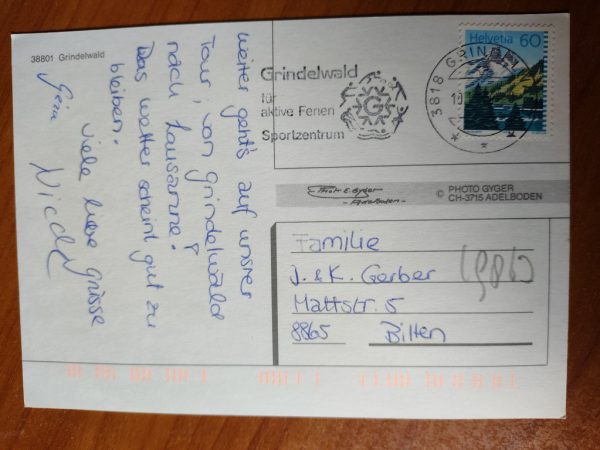 38801 Grindelwald
weiter geht's auf unsrer
Tour, von Grindelwald
nach Lausanne!
Das Wetter scheint gut zu
bleiben.
viele liebe Grüsse
Grindelwald
für
aktive Ferien
Sportzentrum
G
3818 GRIN
Helvetia 60
Photo E. Gyger
- Adelboden -
© PHOTO GYGER
CH-3715 ADELBODEN
Familie
J. & K. Gerber
Mattstr. 5
8865 Bilten